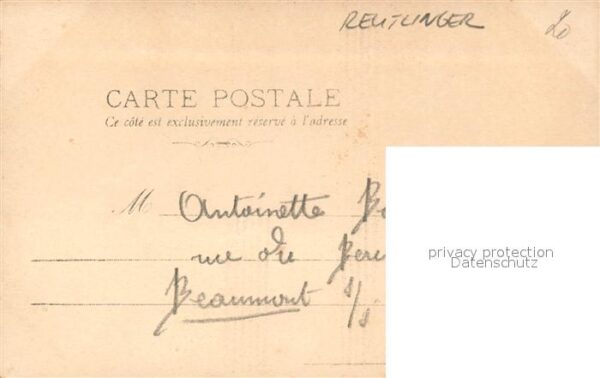 REUTLINGER 20
CARTE POSTALE
Ce côté est exclusivement réservé à l'adresse
M Antoinette
rue du
Beaumont s/
privacy protection
Datenschutz